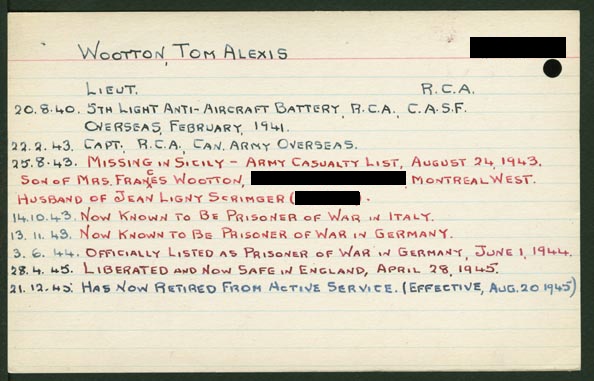 WOOTTON, TOM ALEXIS
LIEUT. R.C.A.
20.8.40. 5TH LIGHT ANTI-AIRCRAFT BATTERY, R.C.A., C.A.S.F.
OVERSEAS, FEBRUARY, 1941.
22.2.43. CAPT., R.C.A., CAN. ARMY OVERSEAS.
25.8.43. MISSING IN SICILY - ARMY CASUALTY LIST, AUGUST 24, 1943.
SON OF MRS. FRANCES WOOTTON, MONTREAL WEST.
HUSBAND OF JEAN LIGNY SCRIMGER ( ).
14.10.43. NOW KNOWN TO BE PRISONER OF WAR IN ITALY.
13.11.43. NOW KNOWN TO BE PRISONER OF WAR IN GERMANY.
3.6.44. OFFICIALLY LISTED AS PRISONER OF WAR IN GERMANY, JUNE 1, 1944.
28.4.45. LIBERATED AND NOW SAFE IN ENGLAND, APRIL 28, 1945.
21.12.45. HAS NOW RETIRED FROM ACTIVE SERVICE. (EFFECTIVE, AUG. 20 1945)